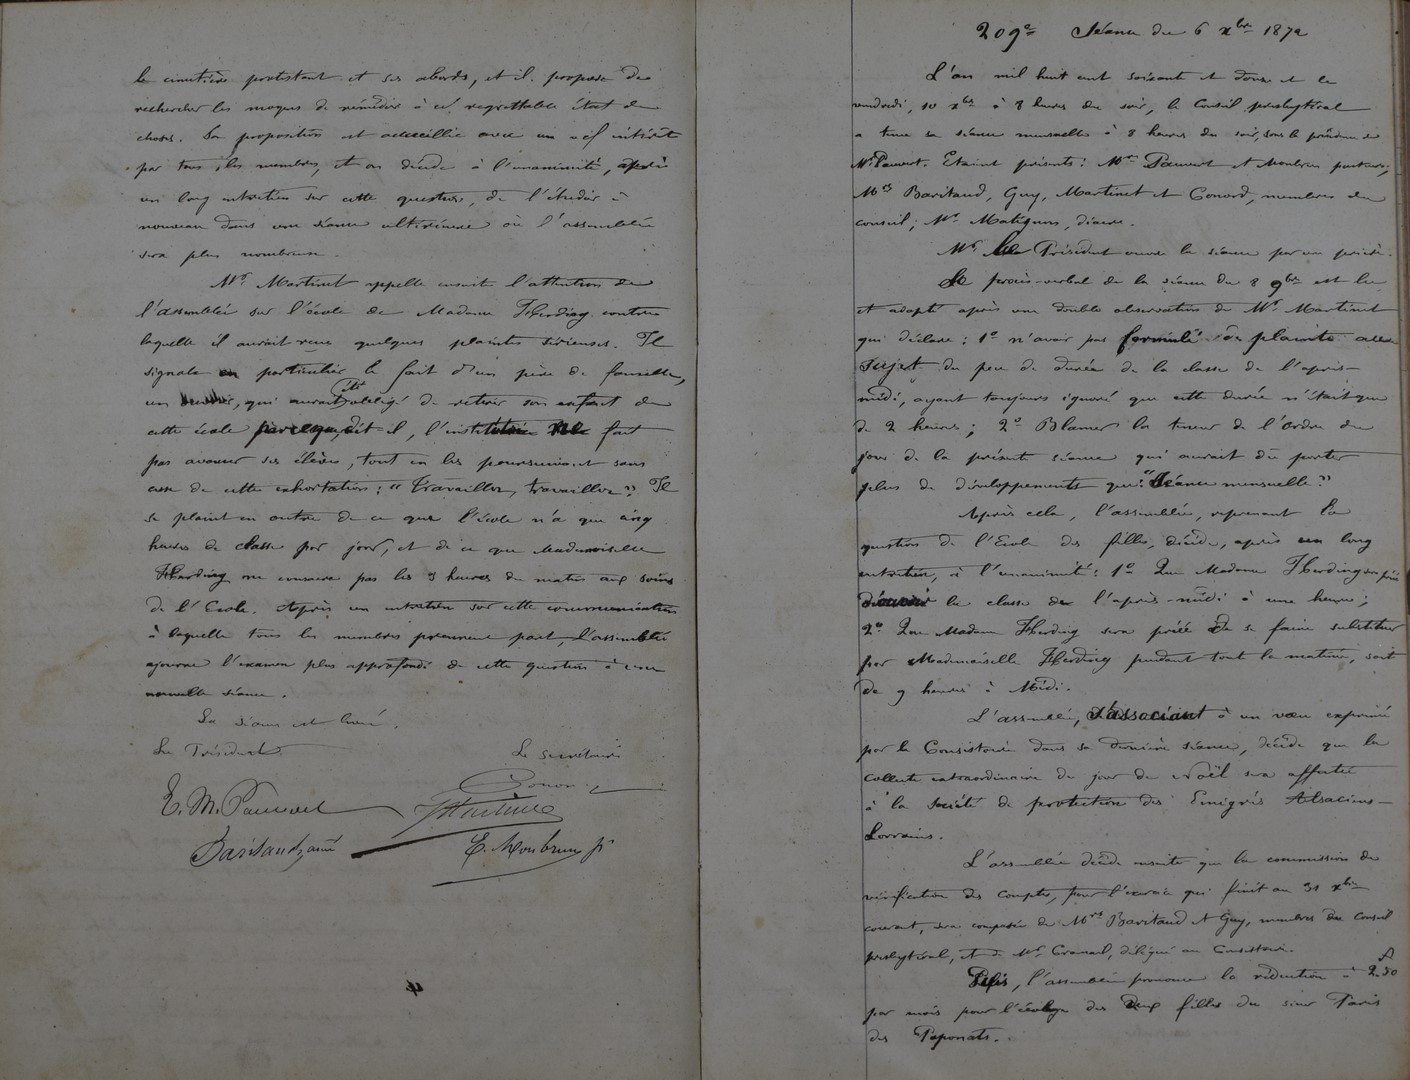 le cimetière protestant et ses abords, et il propose de
rechercher les moyens de remédier à cet regrettable état de
choses. Sa proposition est accueillie avec un vif intérêt
par tous les membres, et on décide à l'unanimité, après
un long entretien sur cette question, de l'étudier à
nouveau dans une séance ultérieure où l'assemblée
sera plus nombreuse.
Mr. Martinet appelle ensuite l'attention de
l'assemblée sur l'école de Madame Herding contre
laquelle il aurait reçu quelques plaintes sérieuses. Il
signale en particulier le fait d'un père de famille,
un qui aurait été obligé de retirer son enfant de
cette école parceque, dit-il, l'institutrice ne fait
pas avancer ses élèves, tout en les poursuivant sans
cesse de cette exhortation : "Travaillez, travaillez". Il
se plaint en outre de ce que l'école n'a que cinq
heures de classe par jour, et de ce que Mademoiselle
Herding ne consacre pas les 3 heures du matin aux soins
de l'Ecole. Après un entretien sur cette communication
à laquelle tous les membres prennent part, l'assemblée
ajourne l'examen plus approfondi de cette question à une
nouvelle séance.
La séance est levée.
Le Président Le Secrétaire
E. M. Pauvert Gonord
Martinet
Baritaud aîné E. Monbrun p.
209e Séance du 6 xbre 1872
L'an mil huit cent soixante et douze et le
vendredi, 10 xbre à 8 heures du soir, le Conseil presbytéral
a tenu sa séance mensuelle à 8 heures du soir, sous la présidence de
Mr. Pauvert. Etaient présents : Mrs Pauvert et Monbrun pasteurs ;
Mrs Baritaud, Guy, Martinet et Gonord, membres du
conseil ; Mr. Matignon, diacre.
Mr. le Président ouvre la séance par une prière.
Le procès-verbal de la séance du 8 9bre est lu
et adopté après une double observation de Mr. Martinet
qui déclare : 1o n'avoir pas formulé de plainte au
sujet du peu de durée de la classe de l'après-
midi, ayant toujours ignoré que cette durée n'était que
de 2 heures ; 2o Blamer la teneur de l'ordre du
jour de la présente séance qui aurait dû porter
plus de développements que : "Séance mensuelle."
Après cela, l'assemblée, reprenant la
question de l'Ecole des filles, décide, après un long
entretien, à l'unanimité : 1o Que Madame Herding sera priée
d'ouvrir la classe de l'après-midi à une heure ;
2o Que Madame Herding sera priée de se faire substituer
par Mademoiselle Herding pendant tout la matinée, soit
de 9 heures à Midi.
L'assemblée, s'associant à un vœu exprimé
par le Consistoire dans sa dernière séance, décide que la
collecte extraordinaire du jour de Noël sera affectée
à la société de protection des Emigrés Alsaciens-
Lorrains.
L'assemblée décide ensuite que la commission de
vérification des comptes, pour l'exercice qui finit au 31 xbre
courant, sera composée de Mrs Baritaud et Guy, membres du Conseil
presbytéral, et de Mr. délégué au Consistoire.
Puis, l'assemblée prononce la réduction à 2f.50
par mois pour l'écolage des deux filles du sieur Paris
des Paponats.